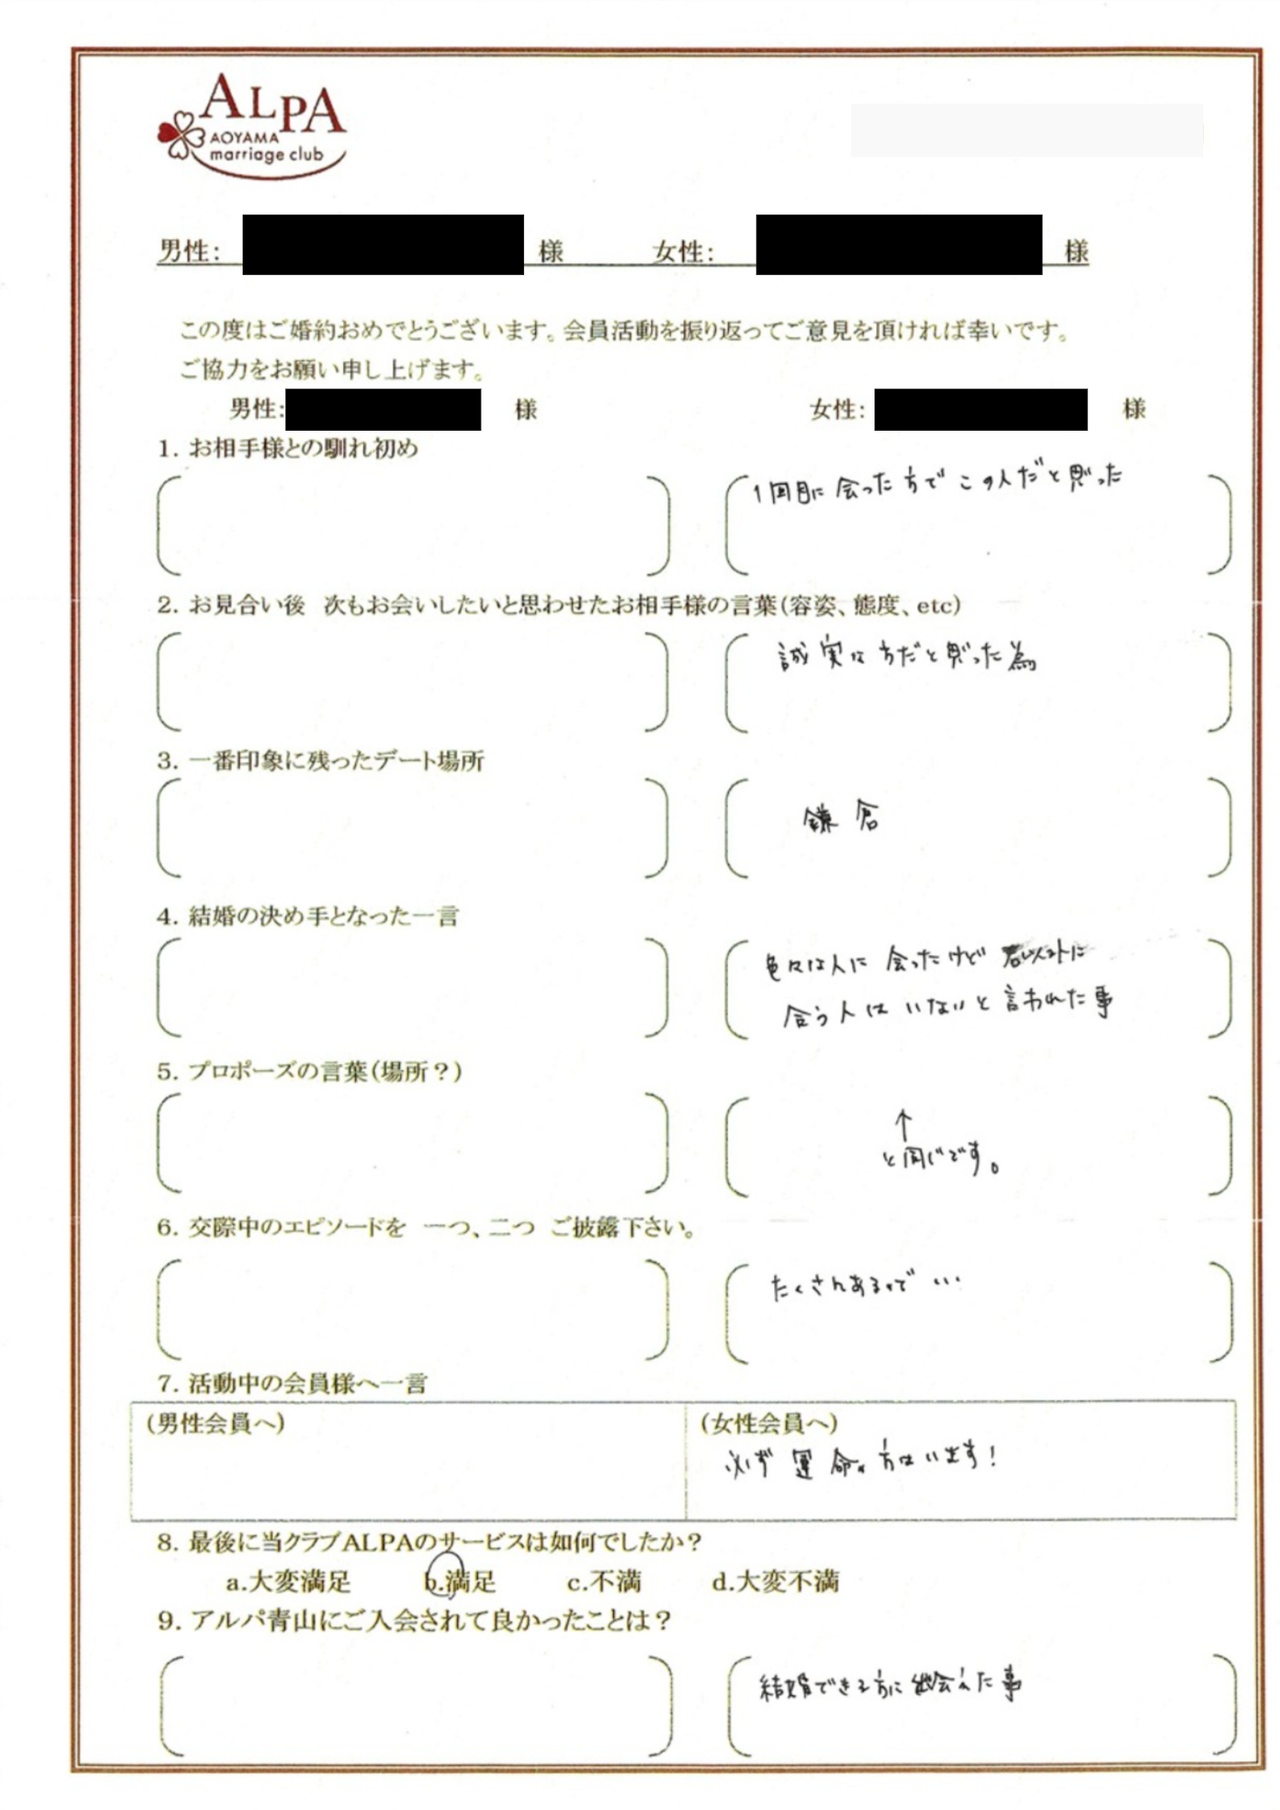 ALPA
AOYAMA
marriage club
男性: 様 女性: 様
この度はご婚約おめでとうございます。会員活動を振り返ってご意見を頂ければ幸いです。
ご協力をお願い申し上げます。
男性: 様 女性: 様
1. お相手様との馴れ初め
1回目に会った方でこの人だと思った
2. お見合い後 次もお会いしたいと思わせたお相手様の言葉(容姿、態度、etc)
誠実な方だと思った為
3. 一番印象に残ったデート場所
鎌倉
4. 結婚の決め手となった一言
色々な人に会ったけど君以外に
合う人はいないと言われた事
5. プロポーズの言葉(場所?)
↑
と同じです。
6. 交際中のエピソードを 一つ、二つ ご披露下さい。
たくさんあるので…
7. 活動中の会員様へ一言
(男性会員へ) (女性会員へ)
必ず運命の方はいます!
8. 最後に当クラブALPAのサービスは如何でしたか?
a.大変満足 b.満足 c.不満 d.大変不満
9. アルパ青山にご入会されて良かったことは?
結婚できる方に出会えた事